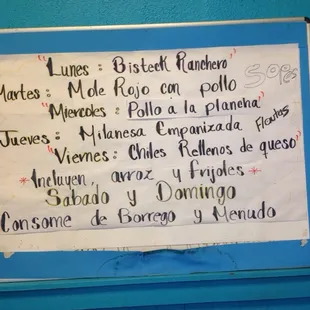 "Lunes : Bisteck Ranchero"
Martes : Mole Rojo con pollo
Sopes
"Miercoles : Pollo a la planena"
Jueves : Milanesa Empanizada
Flautas
"Viernes : Chiles Rellenos de queso"
*Incluyen, arroz y frijoles*
Sabado y Domingo
Consome de Borrego y Menudo